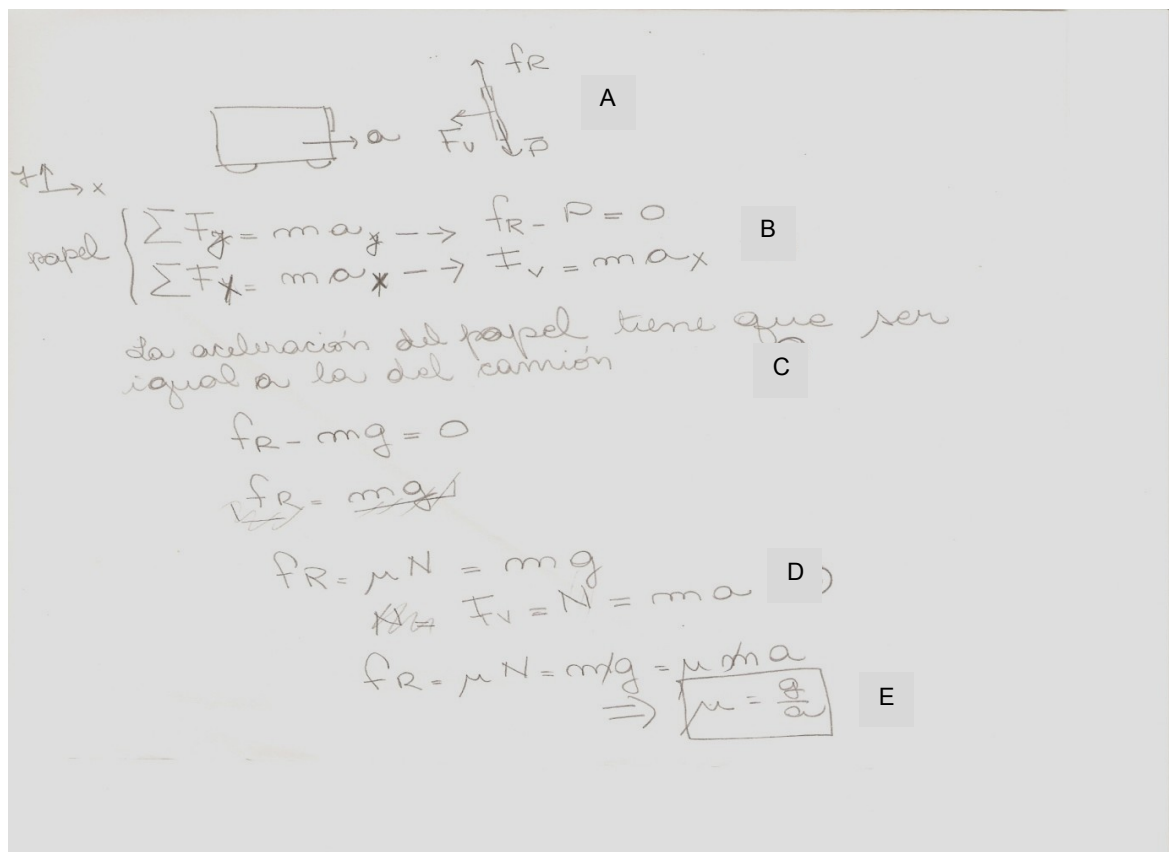 fR
A
a
Fv P
y x
papel
ΣFy = m ay --> fR - P = 0
B
ΣFx = m ax --> Fv = m ax
La aceleración del papel tiene que ser
igual a la del camión
C
fR - mg = 0
fR = mg
fR = μN = mg
D
N = Fv = N = ma
fR = μN = mg = μma
⇒ μ = g/a
E